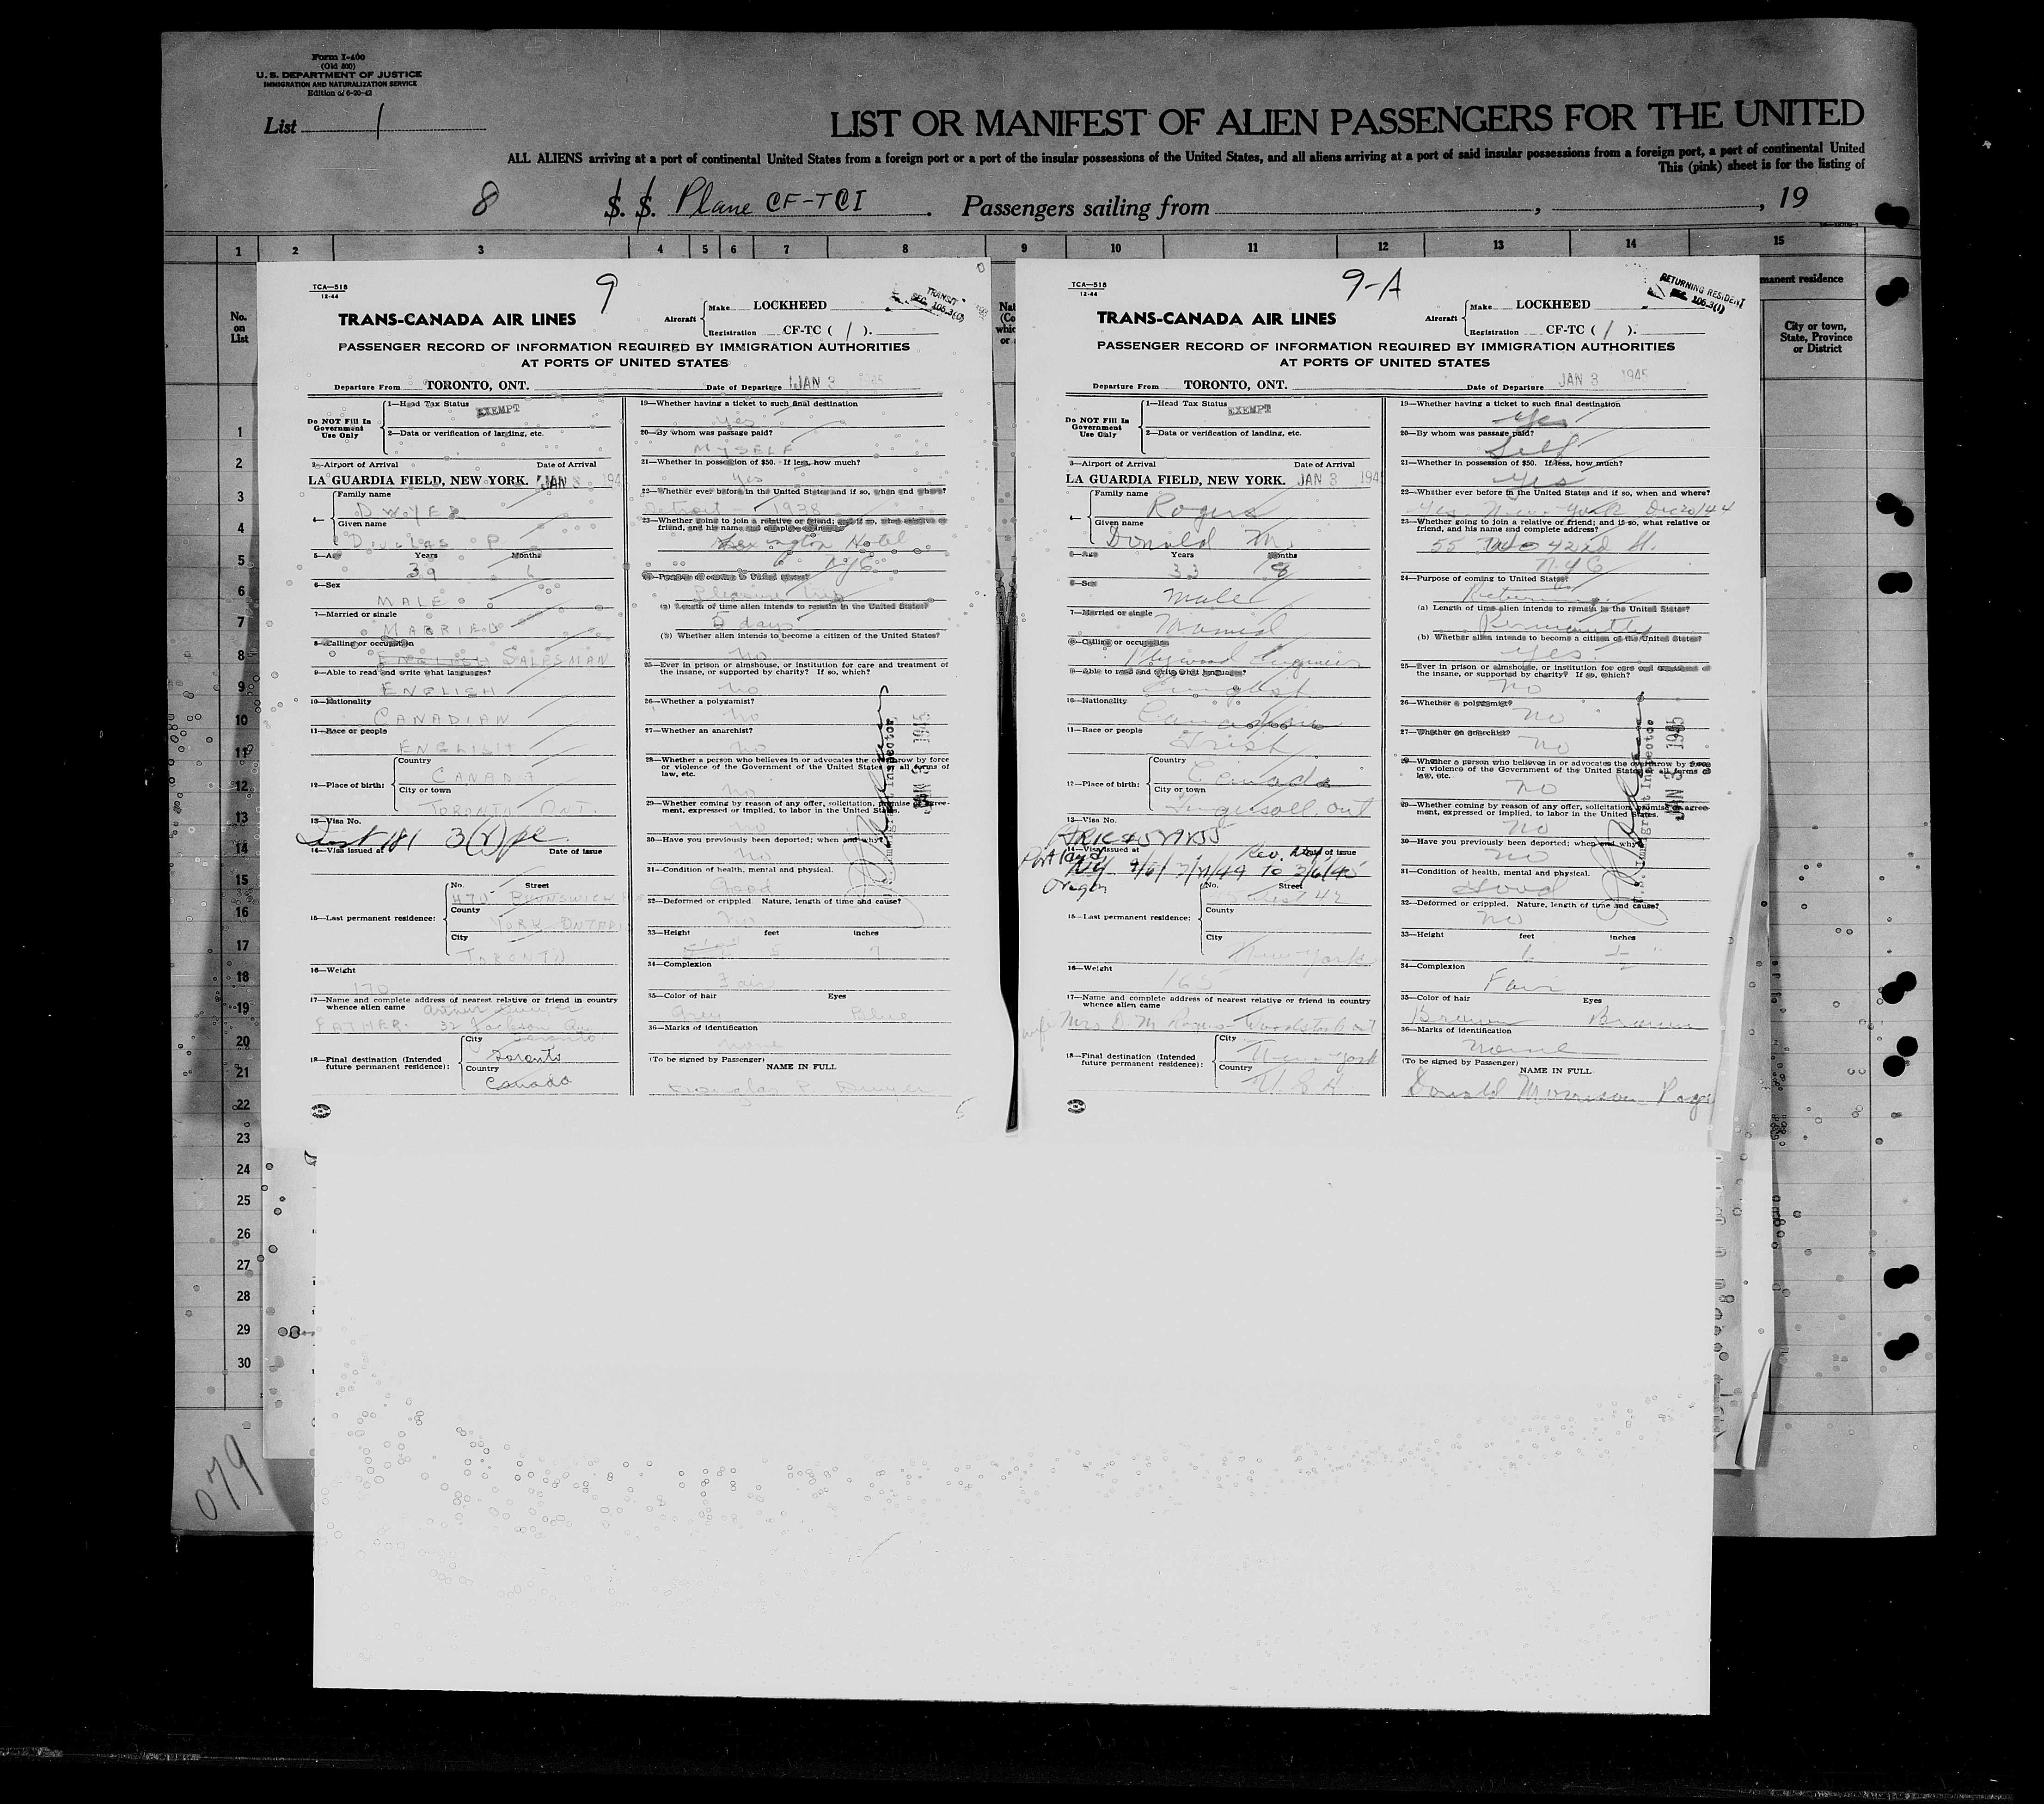 Form I-400
(Old 500)
U. S. DEPARTMENT OF JUSTICE
IMMIGRATION AND NATURALIZATION SERVICE
Edition of 6-20-42
List 1
LIST OR MANIFEST OF ALIEN PASSENGERS FOR THE UNITED
ALL ALIENS arriving at a port of continental United States from a foreign port or a port of the insular possessions of the United States, and all aliens arriving at a port of said insular possessions from a foreign port, a port of continental United
This (pink) sheet is for the listing of
8 S. S. Plane CF-TCI . Passengers sailing from , , 19
1 2 3 4 5 6 7 8 9 10 11 12 13 14 15
No.
on
List
manent residence
City or town,
State, Province
or District
1
2
3
4
5
6
7
8
9
10
11
12
13
14
15
16
17
18
19
20
21
22
23
24
25
26
27
28
29
30
079
TCA—518
12-44
9
TRANSIT
SEC. 106.3(
TRANS-CANADA AIR LINES
Aircraft
Make LOCKHEED
Registration CF-TC ( 1 ).
PASSENGER RECORD OF INFORMATION REQUIRED BY IMMIGRATION AUTHORITIES
AT PORTS OF UNITED STATES
Departure From TORONTO, ONT. Date of Departure JAN 3 1945
Do NOT Fill In
Government
Use Only
1—Head Tax Status EXEMPT
2—Data or verification of landing, etc.
3—Airport of Arrival Date of Arrival
LA GUARDIA FIELD, NEW YORK. JAN 3 194
4— Family name
DWYER
Given name
DOUGLAS P.
5—Age Years Months
39
6—Sex
MALE
7—Married or single
MARRIED
8—Calling or occupation
SALESMAN
9—Able to read and write what languages?
ENGLISH
10—Nationality
CANADIAN
11—Race or people
ENGLISH
12—Place of birth:
Country
CANADA
City or town
TORONTO ONT.
13—Visa No.
181 3(
14—Visa issued at Date of issue
15—Last permanent residence:
No. Street
470 BRUNSWICK
County
YORK ONTARIO
City
TORONTO
16—Weight
170
17—Name and complete address of nearest relative or friend in country
whence alien came Arthur Dwyer
FATHER. 32 Jackson Ave
Toronto.
18—Final destination (Intended
future permanent residence):
City
Toronto
Country
Canada
19—Whether having a ticket to such final destination
Yes
20—By whom was passage paid?
MYSELF
21—Whether in possession of $50. If less, how much?
Yes
22—Whether ever before in the United States and if so, when and where?
Detroit - 1938
23—Whether going to join a relative or friend; and if so, what relative or
friend, and his name and complete address?
Lexington Hotel
NYC.
24—Purpose of coming to United States?
Pleasure trip
(a) Length of time alien intends to remain in the United States?
5 days
(b) Whether alien intends to become a citizen of the United States?
No
25—Ever in prison or almshouse, or institution for care and treatment of
the insane, or supported by charity? If so, which?
No
26—Whether a polygamist?
No
27—Whether an anarchist?
No
28—Whether a person who believes in or advocates the overthrow by force
or violence of the Government of the United States or all forms of
law, etc.
No
29—Whether coming by reason of any offer, solicitation, promise or agree-
ment, expressed or implied, to labor in the United States.
No
30—Have you previously been deported; when and why?
No
31—Condition of health, mental and physical.
Good
32—Deformed or crippled. Nature, length of time and cause?
No
33—Height feet inches
5 7
34—Complexion
Fair
35—Color of hair Eyes
Grey Blue
36—Marks of identification
None
(To be signed by Passenger) NAME IN FULL
Douglas P. Dwyer
Immigrant Inspector
JAN 3 1945
TCA—518
12-44
9-A
RETURNING RESIDENT
SEC. 106.3(
TRANS-CANADA AIR LINES
Aircraft
Make LOCKHEED
Registration CF-TC ( 1 ).
PASSENGER RECORD OF INFORMATION REQUIRED BY IMMIGRATION AUTHORITIES
AT PORTS OF UNITED STATES
Departure From TORONTO, ONT. Date of Departure JAN 3 1945
Do NOT Fill In
Government
Use Only
1—Head Tax Status EXEMPT
2—Data or verification of landing, etc.
3—Airport of Arrival Date of Arrival
LA GUARDIA FIELD, NEW YORK. JAN 3 1945
4— Family name
Rogers
Given name
Donald M.
5—Age Years Months
33 8
6—Sex
Male
7—Married or single
Married
8—Calling or occupation
Plywood Engineer
9—Able to read and write what languages?
English
10—Nationality
Canadian
11—Race or people
Irish
12—Place of birth:
Country
Canada
City or town
Ingersoll, Ont
13—Visa No.
14—Visa issued at Date of issue
Portland
Oregon
15—Last permanent residence:
No. Street
West 42
County
City
New York
16—Weight
165
17—Name and complete address of nearest relative or friend in country
whence alien came
wife Mrs D. M. Rogers - Woodstock ont
18—Final destination (Intended
future permanent residence):
City
New York
Country
U.S.A
19—Whether having a ticket to such final destination
Yes
20—By whom was passage paid?
Self
21—Whether in possession of $50. If less, how much?
Yes
22—Whether ever before in the United States and if so, when and where?
Yes New York Dec 20/44
23—Whether going to join a relative or friend; and if so, what relative or
friend, and his name and complete address?
55 42nd St.
N.Y.C
24—Purpose of coming to United States?
Returning
(a) Length of time alien intends to remain in the United States?
Permanently
(b) Whether alien intends to become a citizen of the United States?
Yes.
25—Ever in prison or almshouse, or institution for care and treatment of
the insane, or supported by charity? If so, which?
No
26—Whether a polygamist?
No
27—Whether an anarchist?
No
28—Whether a person who believes in or advocates the overthrow by force
or violence of the Government of the United States or all forms of
law, etc.
No
29—Whether coming by reason of any offer, solicitation, promise or agree-
ment, expressed or implied, to labor in the United States.
No
30—Have you previously been deported; when and why?
No
31—Condition of health, mental and physical.
Good
32—Deformed or crippled. Nature, length of time and cause?
No
33—Height feet inches
6 ½
34—Complexion
Fair
35—Color of hair Eyes
Brown Brown
36—Marks of identification
None
(To be signed by Passenger) NAME IN FULL
Donald Morrison Rogers
Immigrant Inspector
JAN 3 1945